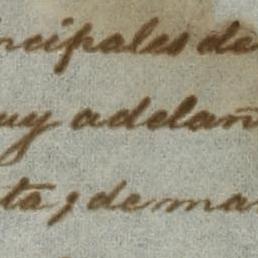 ncipales de
uy adelan
ta, de ma